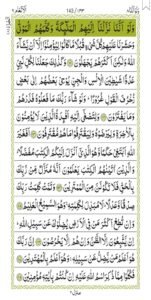 142/١٤٣
وَلَوْ اَنَّنَا نَزَّلْنَاۤ اِلَيْهِمُ الْمَلٰٓئِكَةَ وَكَلَّمَهُمُ الْمَوْتٰى
وَحَشَرْنَا عَلَيْهِمْ كُلَّ شَيْءٍ قُبُلًا مَّا كَانُوْا لِيُؤْمِنُوْۤا اِلَّاۤ اَنْ يَّشَآءَ
اللّٰهُ وَلٰكِنَّ اَكْثَرَهُمْ يَجْهَلُوْنَ وَكَذٰلِكَ جَعَلْنَا لِكُلِّ نَبِيٍّ
عَدُوًّا شَيٰطِيْنَ الْاِنْسِ وَالْجِنِّ يُوْحِيْ بَعْضُهُمْ اِلٰى بَعْضٍ
زُخْرُفَ الْقَوْلِ غُرُوْرًا وَلَوْ شَآءَ رَبُّكَ مَا فَعَلُوْهُ فَذَرْهُمْ
وَمَا يَفْتَرُوْنَ وَلِتَصْغٰۤى اِلَيْهِ اَفْـِٕدَةُ الَّذِيْنَ لَا يُؤْمِنُوْنَ
بِالْاٰخِرَةِ وَلِيَرْضَوْهُ وَلِيَقْتَرِفُوْا مَا هُمْ مُّقْتَرِفُوْنَ اَفَغَيْرَ اللّٰهِ
اَبْتَغِيْ حَكَمًا وَّهُوَ الَّذِيْۤ اَنْزَلَ اِلَيْكُمُ الْكِتٰبَ مُفَصَّلًا
وَالَّذِيْنَ اٰتَيْنٰهُمُ الْكِتٰبَ يَعْلَمُوْنَ اَنَّهٗ مُنَزَّلٌ مِّنْ رَّبِّكَ
بِالْحَقِّ فَلَا تَكُوْنَنَّ مِنَ الْمُمْتَرِيْنَ وَتَمَّتْ كَلِمَتُ رَبِّكَ
صِدْقًا وَّعَدْلًا لَا مُبَدِّلَ لِكَلِمٰتِهٖ وَهُوَ السَّمِيْعُ الْعَلِيْمُ
وَاِنْ تُطِعْ اَكْثَرَ مَنْ فِي الْاَرْضِ يُضِلُّوْكَ عَنْ سَبِيْلِ اللّٰهِ
اِنْ يَّتَّبِعُوْنَ اِلَّا الظَّنَّ وَاِنْ هُمْ اِلَّا يَخْرُصُوْنَ اِنَّ رَبَّكَ
هُوَ اَعْلَمُ مَنْ يَّضِلُّ عَنْ سَبِيْلِهٖ وَهُوَ اَعْلَمُ بِالْمُهْتَدِيْنَ
فَكُلُوْا مِمَّا ذُكِرَ اسْمُ اللّٰهِ عَلَيْهِ اِنْ كُنْتُمْ بِاٰيٰتِهٖ مُؤْمِنِيْنَ
منزل٢